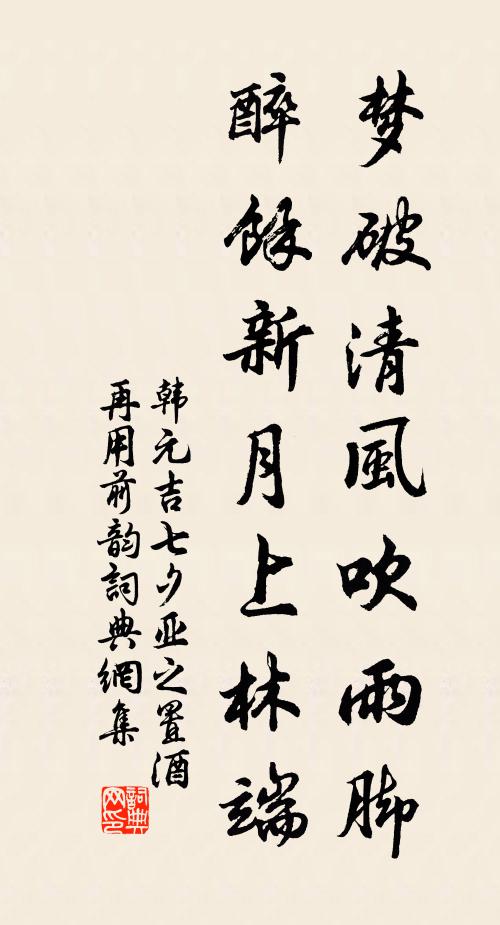 梦破清風吹雨脚
醉餘新月上林端
韩元吉七夕亚之置酒
再用前韵詞典網集
詞典網印